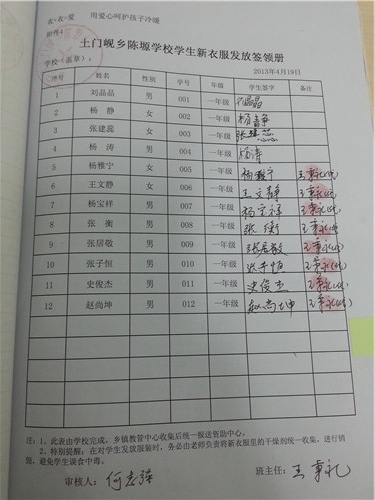 衣·衣·爱 用爱心呵护孩子冷暖
附件4:
土门岘乡陈塬学校学生新衣服发放签领册
学校（盖章）： 2013年4月19日
序号 姓名 性别 学号 年级 学生签字 备注
1 刘晶晶 男 001 一年级 刘晶晶
2 杨静 女 002 一年级 杨静
3 张建蕊 女 003 一年级 张建蕊
4 杨涛 男 004 一年级 杨涛
5 杨雅宁 女 005 一年级 杨雅宁 王
6 王文静 女 006 一年级 王文静 王
7 杨宝祥 男 007 一年级 杨宝祥 王
8 张衡 男 008 一年级 张衡 王
9 张居敬 男 009 一年级 张居敬 王
10 张子恒 男 010 一年级 张子恒 王
11 史俊杰 男 011 一年级 史俊杰 王
12 赵尚坤 男 012 一年级 赵尚坤 王
注：1，此表由学校完成，乡镇教管中心收集后统一报送资助中心。
2，特别提醒：在对学生发放服装时，务必由老师负责将新衣服里的干燥剂统一收集，进行销
毁，避免学生误食中毒。
审核人：何志强 班主任：王